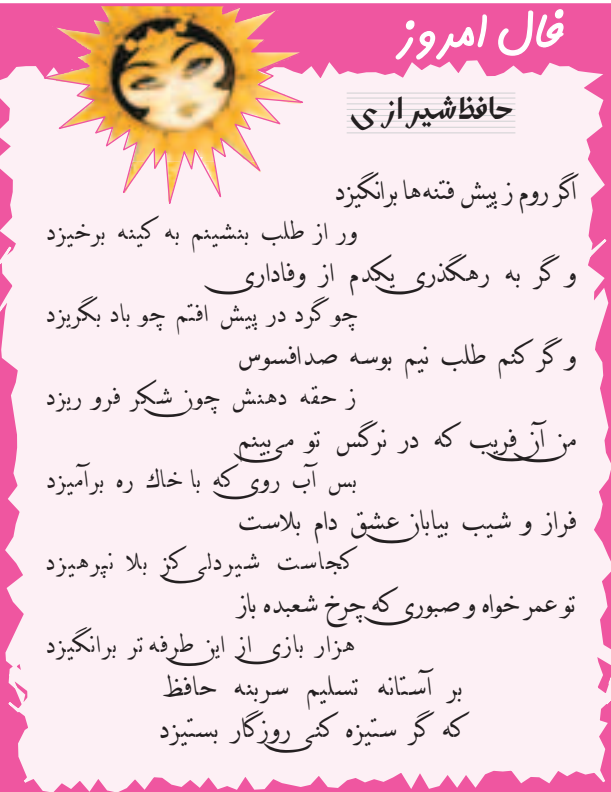 فال امروز
حافظ شیرازی
اگر روم ز پیش فتنه‌ها برانگیزد
ور از طلب بنشینم به کینه برخیزد
و گر به رهگذری یکدم از وفاداری
چو گرد در پیش افتم چو باد بگریزد
و گر کنم طلب نیم بوسه صد افسوس
ز حقه دهنش چون شکر فرو ریزد
من آن فریب که در نرگس تو می‌بینم
بس آب روی که با خاك ره برآمیزد
فراز و شیب بیابان عشق دام بلاست
کجاست شیردلی کز بلا نپرهیزد
تو عمر خواه و صبوری که چرخ شعبده باز
هزار بازی از این طرفه تر برانگیزد
بر آستانه تسلیم سربنه حافظ
که گر ستیزه کنی روزگار بستیزد